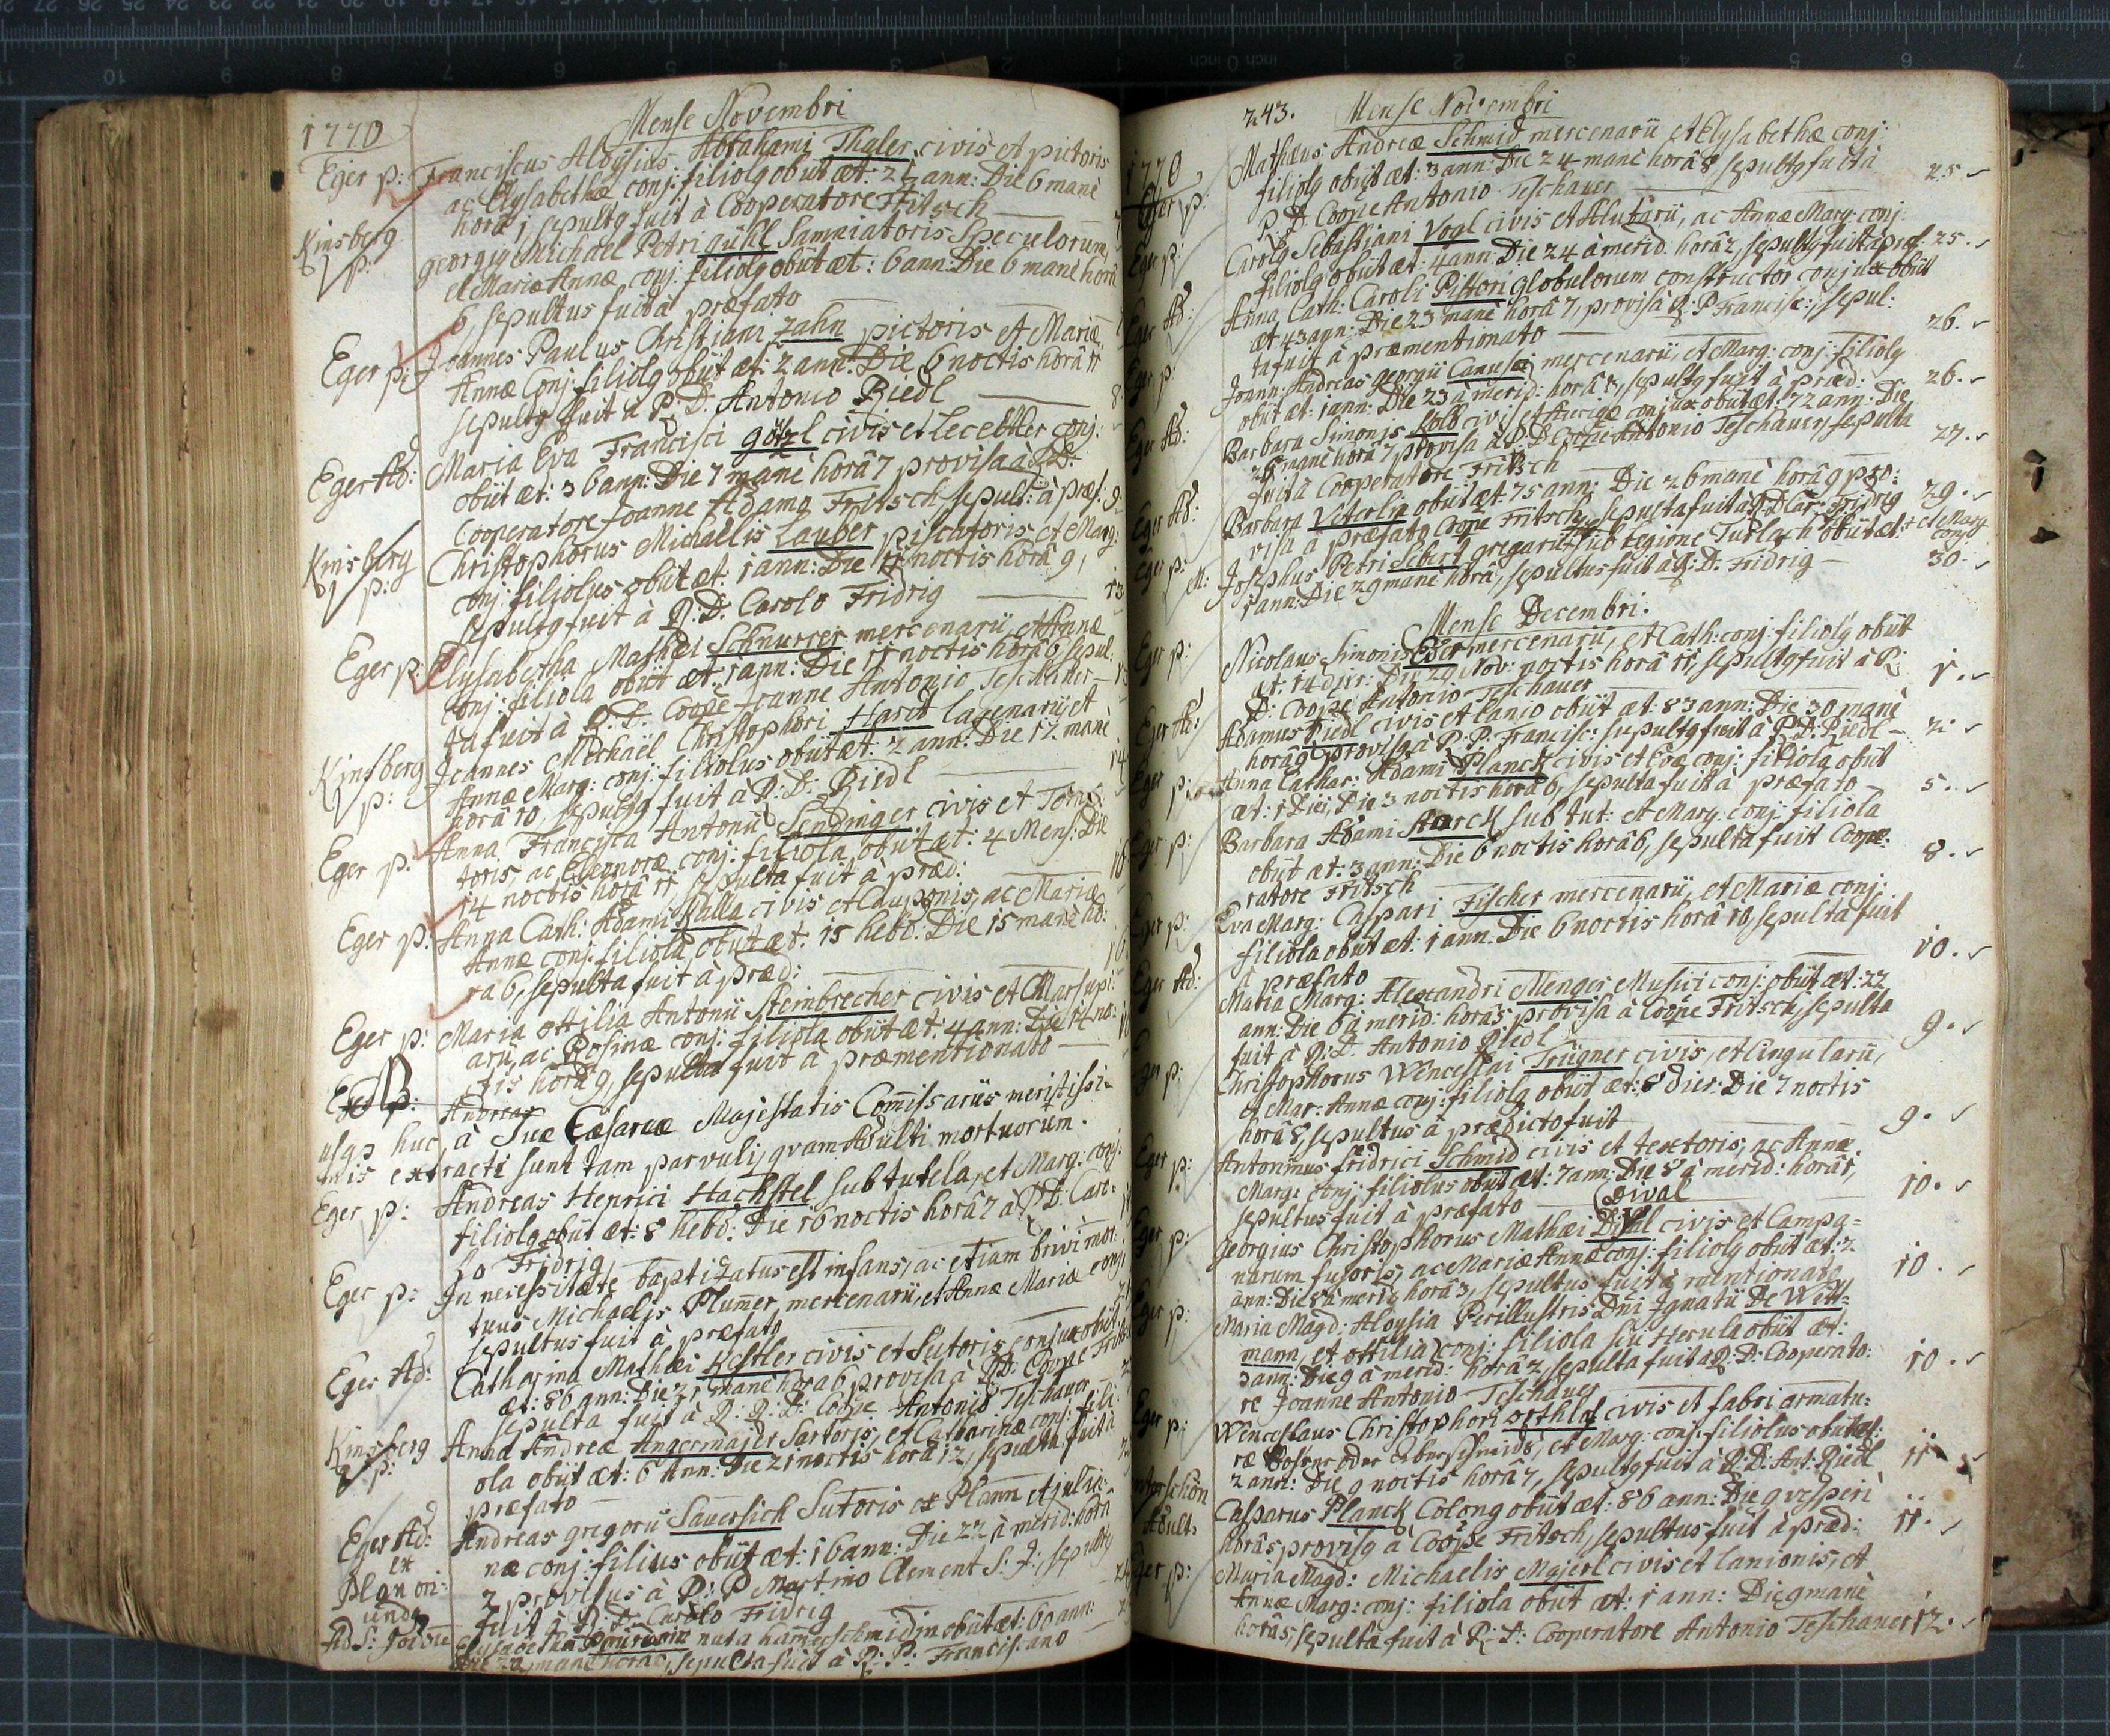 1770
Mense Novembri
Eger p: Franciscus Aloysius Abrahami Thaler civis et pictoris
ac Elysabethæ conj: filiolg obiit æt: 2½ ann: Die 6 mane
horâ 1 sepultg fuit à Cooperatore Fritsch
Kinsberg p: georgig Michael Petri gühl Samniatoris Speculorum,
et Mariæ Annæ conj: filiolg obiit æt: 6 ann: Die 6 mane horâ
6, sepultus fuit à præfato
Eger p: Joannes Paulus Christiani Zahn pictoris et Mariæ
Annæ Conj: filiolg obiit æt: 2 ann: Die 6 noctis horâ 11
sepultg fuit à R: D: Antonio Riedl 8
Eger Ad: Maria Eva Francisci götzl civis et lecebtler conj:
obiit æt: 36 ann: Die 7 manè horâ 7 provisa à R:D:
Cooperatore Joanne Adamo Fritsch sepult: à præf: 9
Kinsberg p: Christophorus Michaëlis Lauber piscatoris et Marg:
conj: filiolus obiit æt: 1 ann: Die 11 noctis horâ 9,
sepultg fuit à R: D: Carolo Fridrig 13
Eger p: Elysabetha Mathæi Schnurrer mercenarii, et Annæ
conj: filiola obiit æt: 1 ann: Die 11 noctis horâ 6, sepul:
ta fuit à R: D: Coope Joanne Antonio Teschauer 13
Kinsberg p: Joannes Michaël Christophori Hart lagenarii, et
Annæ Marg: conj: filiolus obiit æt: 2 ann: Die 12 manè
horâ 10, sepultg fuit à R: D: Riedl 14
Eger p: Anna Francisca Antonii Sendinger civis et Tons:
toris, ac Eleonoræ conj: filiola obiit æt: 4 Mens: Die
14 noctis horâ 11 sepulta fuit à præd: 16
Eger p: Anna Cath: Adami Kalla civis et Cauponis, ac Mariæ
Annæ conj: filiola obiit æt: 15 hebd: Die 15 mane ho:
ra 6, sepulta fuit à præd: 16
Eger p: Maria Ottilia Antonii Steinbrecher civis et Marsupi:
arii, ac Rosinæ conj: filiola obiit æt: 4 ann: Die 14 no:
ctis horâ 9, sepulta fuit à præmentionato
Eger p: Andreas
usq huc à Suæ Cæsareæ Majestatis Commissariis meritissi:
mis extracti sunt tam parvuli, quam Adulti mortuorum.
Eger p: Andreas Henrici Hachstel sub tutela, et Marg: conj:
filiolg obiit æt: 8 hebd: Die 16 noctis horâ 7 à R:D: Caro:
lo Fridrig
Eger p: In necessitate baptizatus est infans, ac etiam brevi mor:
tuus Michaelis Plumer mercenarii, et Annæ Mariæ conj
sepultus fuit à præfato
Eger Ad: Catharina Mathæi Köstler civis et Sutoris conjux obiit
æt: 86 ann: Die 21 manè horâ 6 provisa à R:D: Coope
sepulta fuit à R: R: D: Coope Antonio Teschauer
Kinsberg p: Anna Andreæ Angermajer Sartoris, et Catharinæ conj: fili:
ola obiit æt: 6 Ann: Die 21 noctis horâ 12, sepulta fuit à
præfato
Eger Ad: Andreas gregorii Sauersich Sutoris ex Plann et julia:
ex næ conj: filius obiit æt: 16 ann: Die 22 à merid: horâ
Plan ori: 2 provisus à R: P Martino Clement S: J:, sepultg
unda fuit à R: D: Carolo Fridrig 24
Ad S: Elysabetha nata hammerschmidin obiit æt: 60 ann:
manè horâ, sepulta fuit à R: P: Franciscano
243. Mense Novembri
1770
Eger p: Mathæus Andreæ Schmid mercenarii et Elysabethæ conj:
filiolg obiit æt: 3 ann: Die 24 manè horâ 8 sepultg fuit à
R: D: Coope Antonio Teschauer 25.
Eger p: Carolg Sebastiani Vogl civis et Alutarii, ac Annæ Mary: conj:
filiolg obiit æt: 4 ann: Die 24 à merid horâ 2, sepultg fuit à præf: 25.
Eger Ad: Anna Cath: Caroli Pistori globulorum constructor conjux obiit
æt 43 ann: Die 23 manè horâ 7, provisa à R: P Francisc:, sepul:
ta fuit à præmentionato 26.
Eger p: Joann: Andreas georgii Canusa mercenarii, et Marg: conj: filiolg
obiit æt: 1 ann: Die 23 à merid: horâ 3, sepultg fuit à præd: 26.
Eger Ad: Barbara Simonis Kolb civis et Aurigæ conjux obiit æt: 72 ann: Die
26 manè horâ 7, provisa à R: D: Coope Antonio Teschauer, sepulta
fuit à Cooperatore Fritsch 27.
Eger Ad: Barbara Veterlin obiit æt: 75 ann: Die 26 manè horâ 9 pro:
visa à præfato Coope Fritsch, sepulta fuit à R:D: Car: Fridrig 29.
Eger p: M: Josephus Petri Sebert gregarii sub legione Turlach obiit æt: et Mary conj:
1 ann: Die 29 manè horâ, sepultus fuit à R: D: Fridrig 30.
Mense Decembri.
Eger p: Nicolaus Simonis Eder mercenarii, et Cath: conj: filiolg obiit
æt: 14 dier: Die 29 Nov: noctis horâ 11, sepultg fuit à R:
D: Coope Antonio Teschauer 1.
Eger Ad: Adamus Riedl civis et lanio obiit æt: 83 ann: Die 30 manè
horâ 9 provisg à R: P: Francisc: sepultg fuit à R: D: Riedl 2.
Eger p: Anna Cathar: Adami Planck civis et Evæ conj: filiola obiit
æt: 1 Diei, Die 3 noctis horâ 6, sepulta fuit à præfato 5.
Eger p: Barbara Adami Starck sub tut: et Mary: conj: filiola
obiit æt: 3 ann: Die 6 noctis horâ 6, sepulta fuit Coope:
ratore Fritsch 8.
Eger p: Eva Marg: Caspari Fischer mercenarii, et Mariæ conj:
filiola obiit æt: 1 ann: Die 6 noctis horâ 10, sepulta fuit
à præfato 10.
Eger Ad: Maria Marg: Alexandri Menger Musici conj: obiit æt: 22
ann: Die 6 à merid: horâ 5 provisa à Coope Fritsch, sepulta
fuit à R: D: Antonio Riedl 9.
Eger p: Christophorus Wenceslai Trügner civis, et Cingularii,
et Mar: Annæ conj: filiolg obiit æt: 8 dier: Die 7 noctis
horâ 8, sepultus à prædicto fuit 9.
Eger p: Antonius fridrici Schmid civis et textoris, ac Annæ
Marg: conj: filiolus obiit æt: 7 ann: Die 8 à merid: horâ 1,
sepultus fuit à præfato 10.
Dival
Eger p: Georgius Christophorus Mathæi Dival civis et Campa=
narum fusoris, ac Mariæ Annæ conj: filiolg obiit æt: 2
ann: Die 8 à merid horâ 3, sepultus fuit à mentionato 10.
Eger p: Maria Magd: Aloysia Perillustris Dni Ignatii De Witt=
mann, et Ottilia conj: filiola seu Herula obiit æt:
3 ann: Die 9 à merid: horâ 2, sepulta fuit à R: D: Cooperato:
re Joanne Antonio Teschauer 10.
Eger p: Wenceslaus Christophori Orthlof civis et fabri armatu:
ræ oder, et Marg: conj: filiolus obiit æt:
2 ann: Die 9 noctis horâ 7, sepultg fuit à R: D: Ant: Riedl 11
Adult: Casparus Planck Colong obiit æt: 86 ann: Die 9 vesperi
horâ 5 provisg à Coope Fritsch, sepultus fuit à præd: 11.
Eger p: Maria Magd: Michaelis Majerl civis et lanionis, et
Annæ Marg: conj: filiola obiit æt: 1 ann: Die 9 manè
horâ 5, sepulta fuit à R: D: Cooperatore Antonio Teschauer 12.